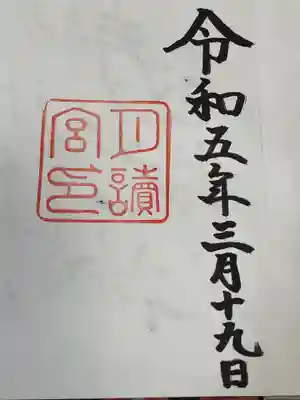 令和五年三月十九日
月讀
宮印